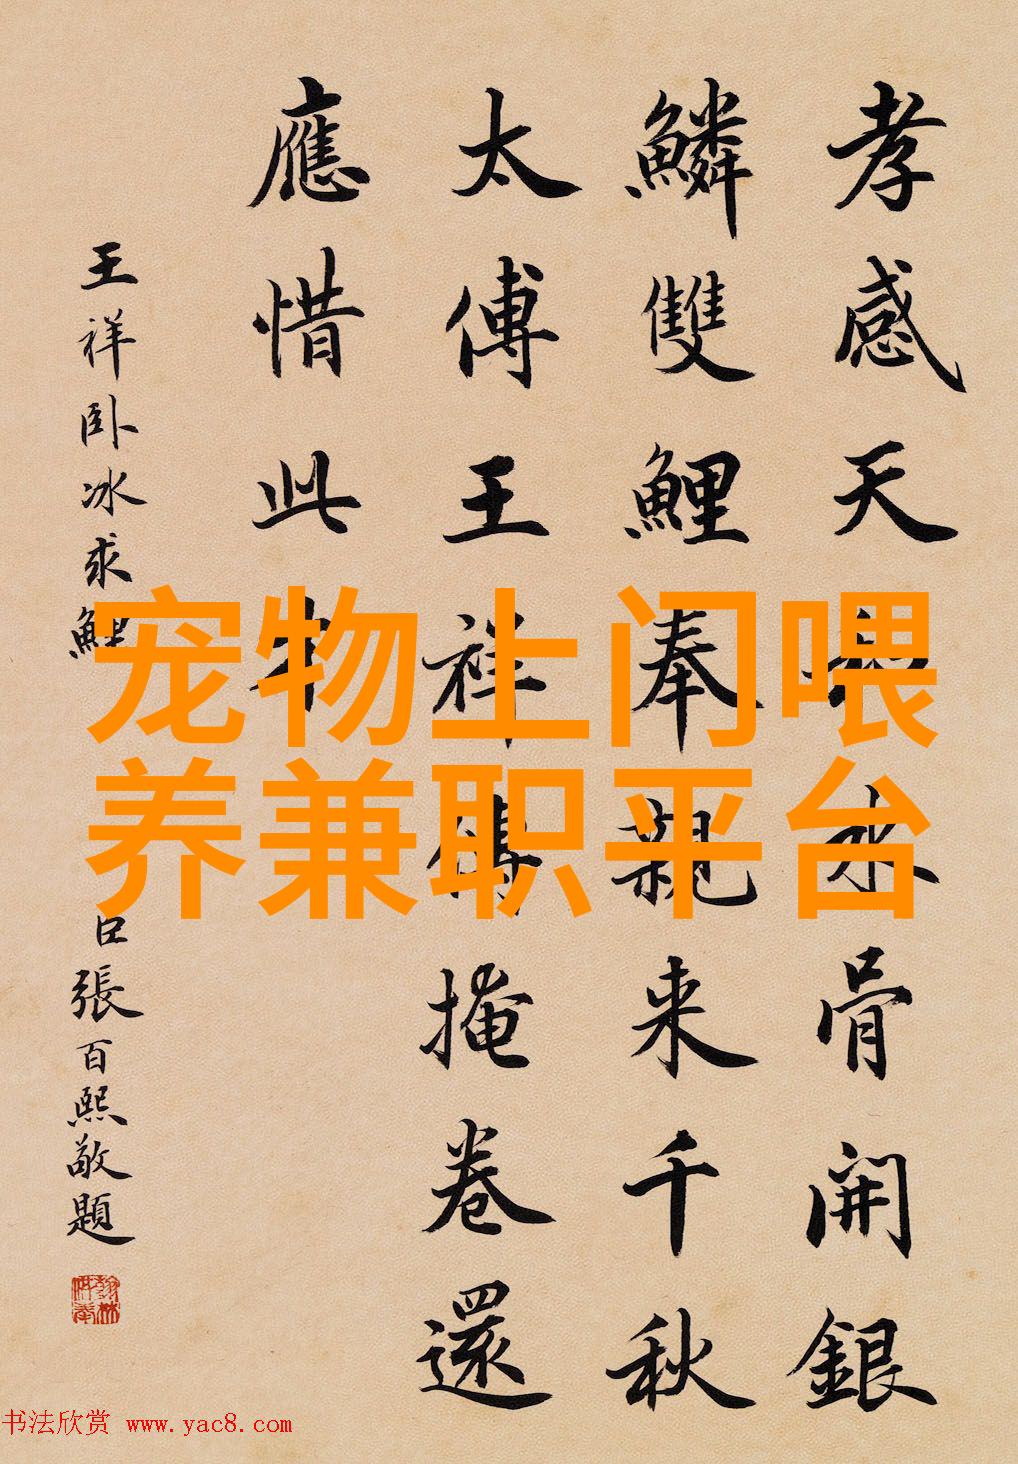 孝感天骨開銀
鱗雙鯉奉親来千秋
太傅王祥傳掩卷還
應惜此
王祥卧冰求鯉
口張百熙敬題
宠物上门喂
养兼职平台
书法欣赏 www.yac8.com